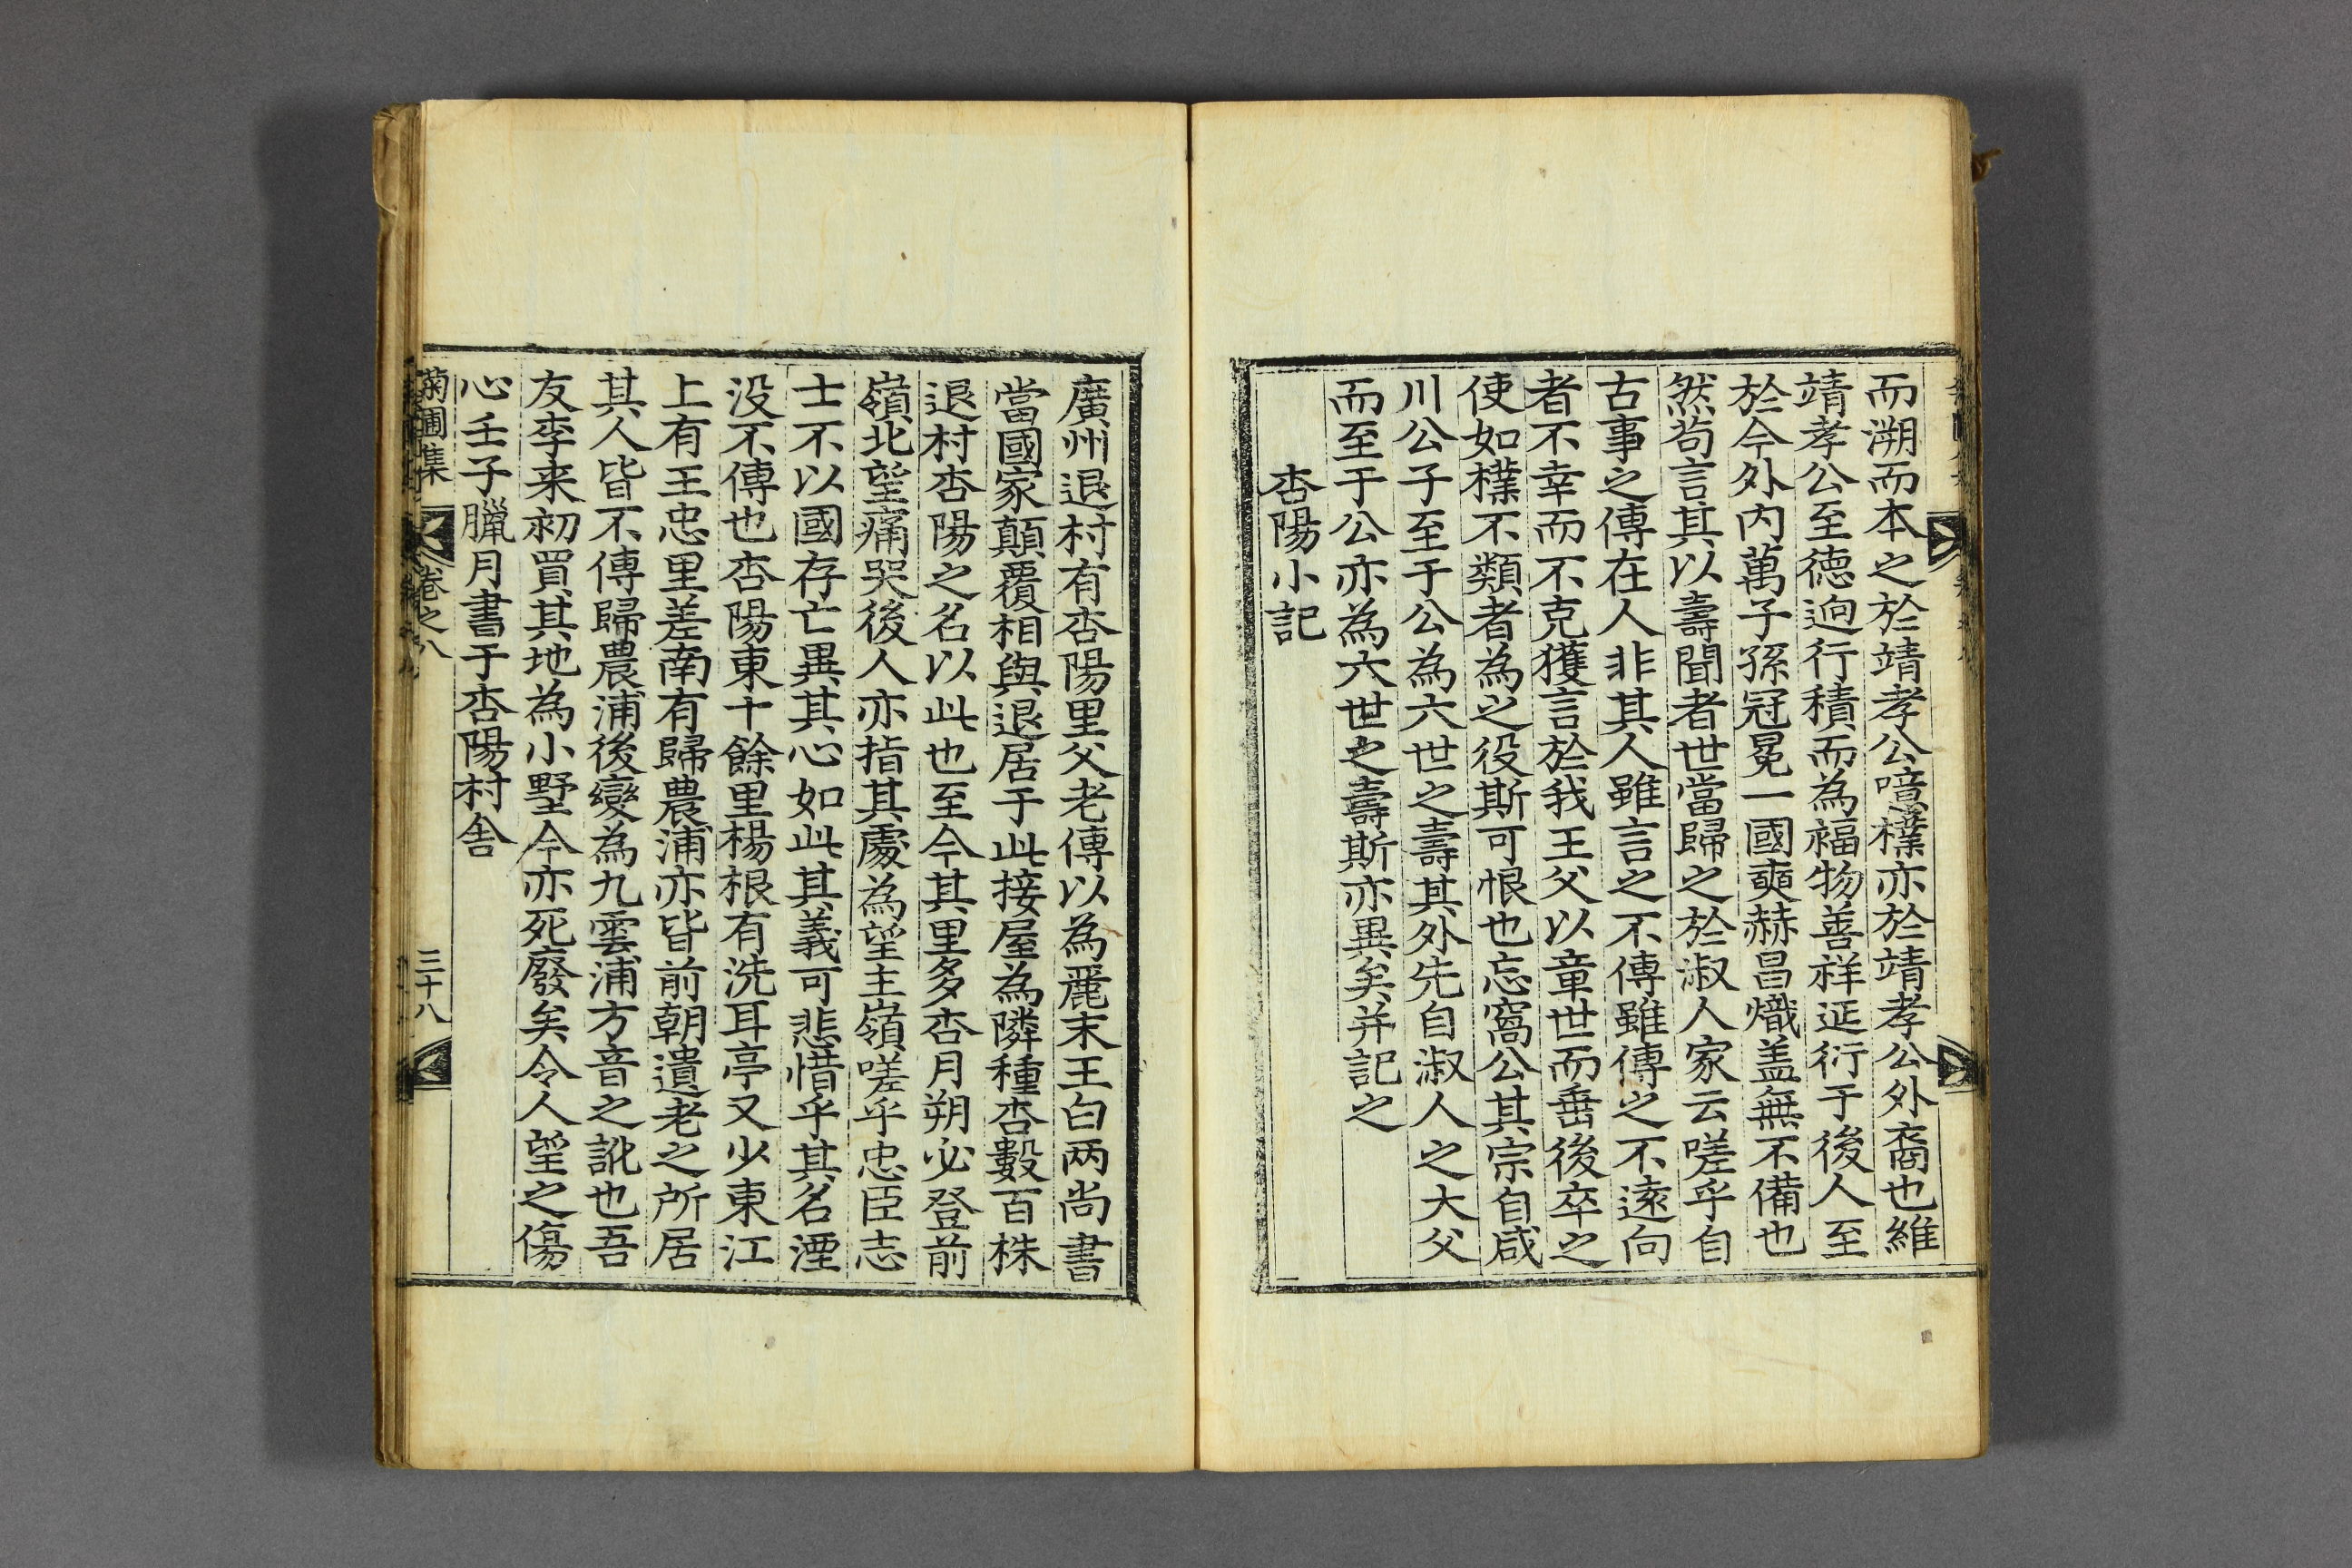 而溯而本之於靖孝公噫樸亦於靖孝公外裔也維
靖孝公至德逈行積而為福物善祥延衍于後人至
於今外内萬子孫冠冕一國奭赫昌熾盖無不備也
然茍言其以壽聞者世當歸之於淑人家云嗟乎自
古事之傳在人非其人雖言之不傳雖傳之不遠向
者不幸而不克獲言於我王父以章世而垂後卒之
使如樸不類者為之役斯可恨也忘窩公其宗自咸
川公子至于公為六世之壽其外先自淑人之大父
而至于公亦為六世之壽斯亦異矣并記之
杏陽小記
廣州退村有杏陽里父老傳以為麗末王白两尚書
當國家顛覆相與退居于此接屋為隣種杏數百株
退村杏陽之名以此也至今其里多杏月朔必登前
嶺北望痛哭後人亦指其處為望主嶺嗟乎忠臣志
士不以國存亡異其心如此其義可悲惜乎其名湮
没不傳也杏陽東十餘里楊根有洗耳亭又少東江
上有王忠里差南有歸農浦亦皆前朝遺老之所居
其人皆不傳歸農浦後變為九雲浦方音之訛也吾
友李来初買其地為小墅今亦死廢矣令人望之傷
心壬子臘月書于杏陽村舎
菊圃集
卷之八
三十八